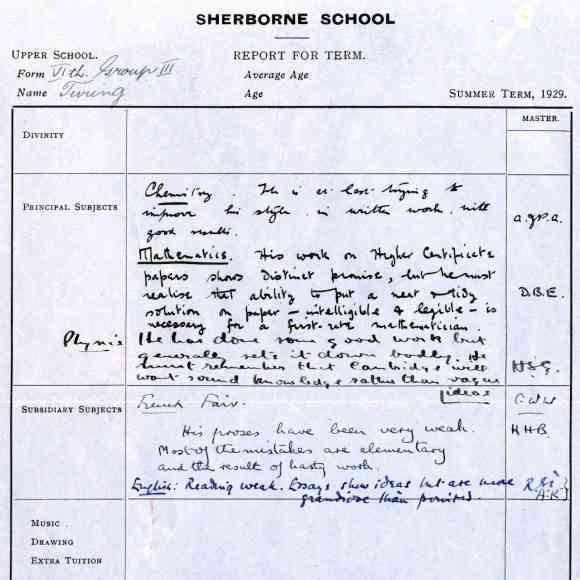 SHERBORNE SCHOOL
UPPER SCHOOL. REPORT FOR TERM.
Form VIth. Group III Average Age
Name Turing Age SUMMER TERM, 1929.
MASTER.
DIVINITY
PRINCIPAL SUBJECTS
Chemistry. He is at last trying to
improve his style in written work, with
good results. A.J.P.A.
Mathematics. His work on Higher Certificate
papers shows distinct promise, but he must
realise that ability to put a neat & tidy
solution on paper – intelligible & legible – is
necessary for a first-rate mathematician. D.B.E.
Physics He has done some good work but
generally sets it down badly. He
must remember that Cambridge will
want sound knowledge rather than vague
ideas
SUBSIDIARY SUBJECTS French Fair.
His proses have been very weak. H.H.B.
Most of the mistakes are elementary
and the result of hasty work.
English: Reading weak. Essays show ideas but are more
grandiose than
MUSIC
DRAWING
EXTRA TUITION